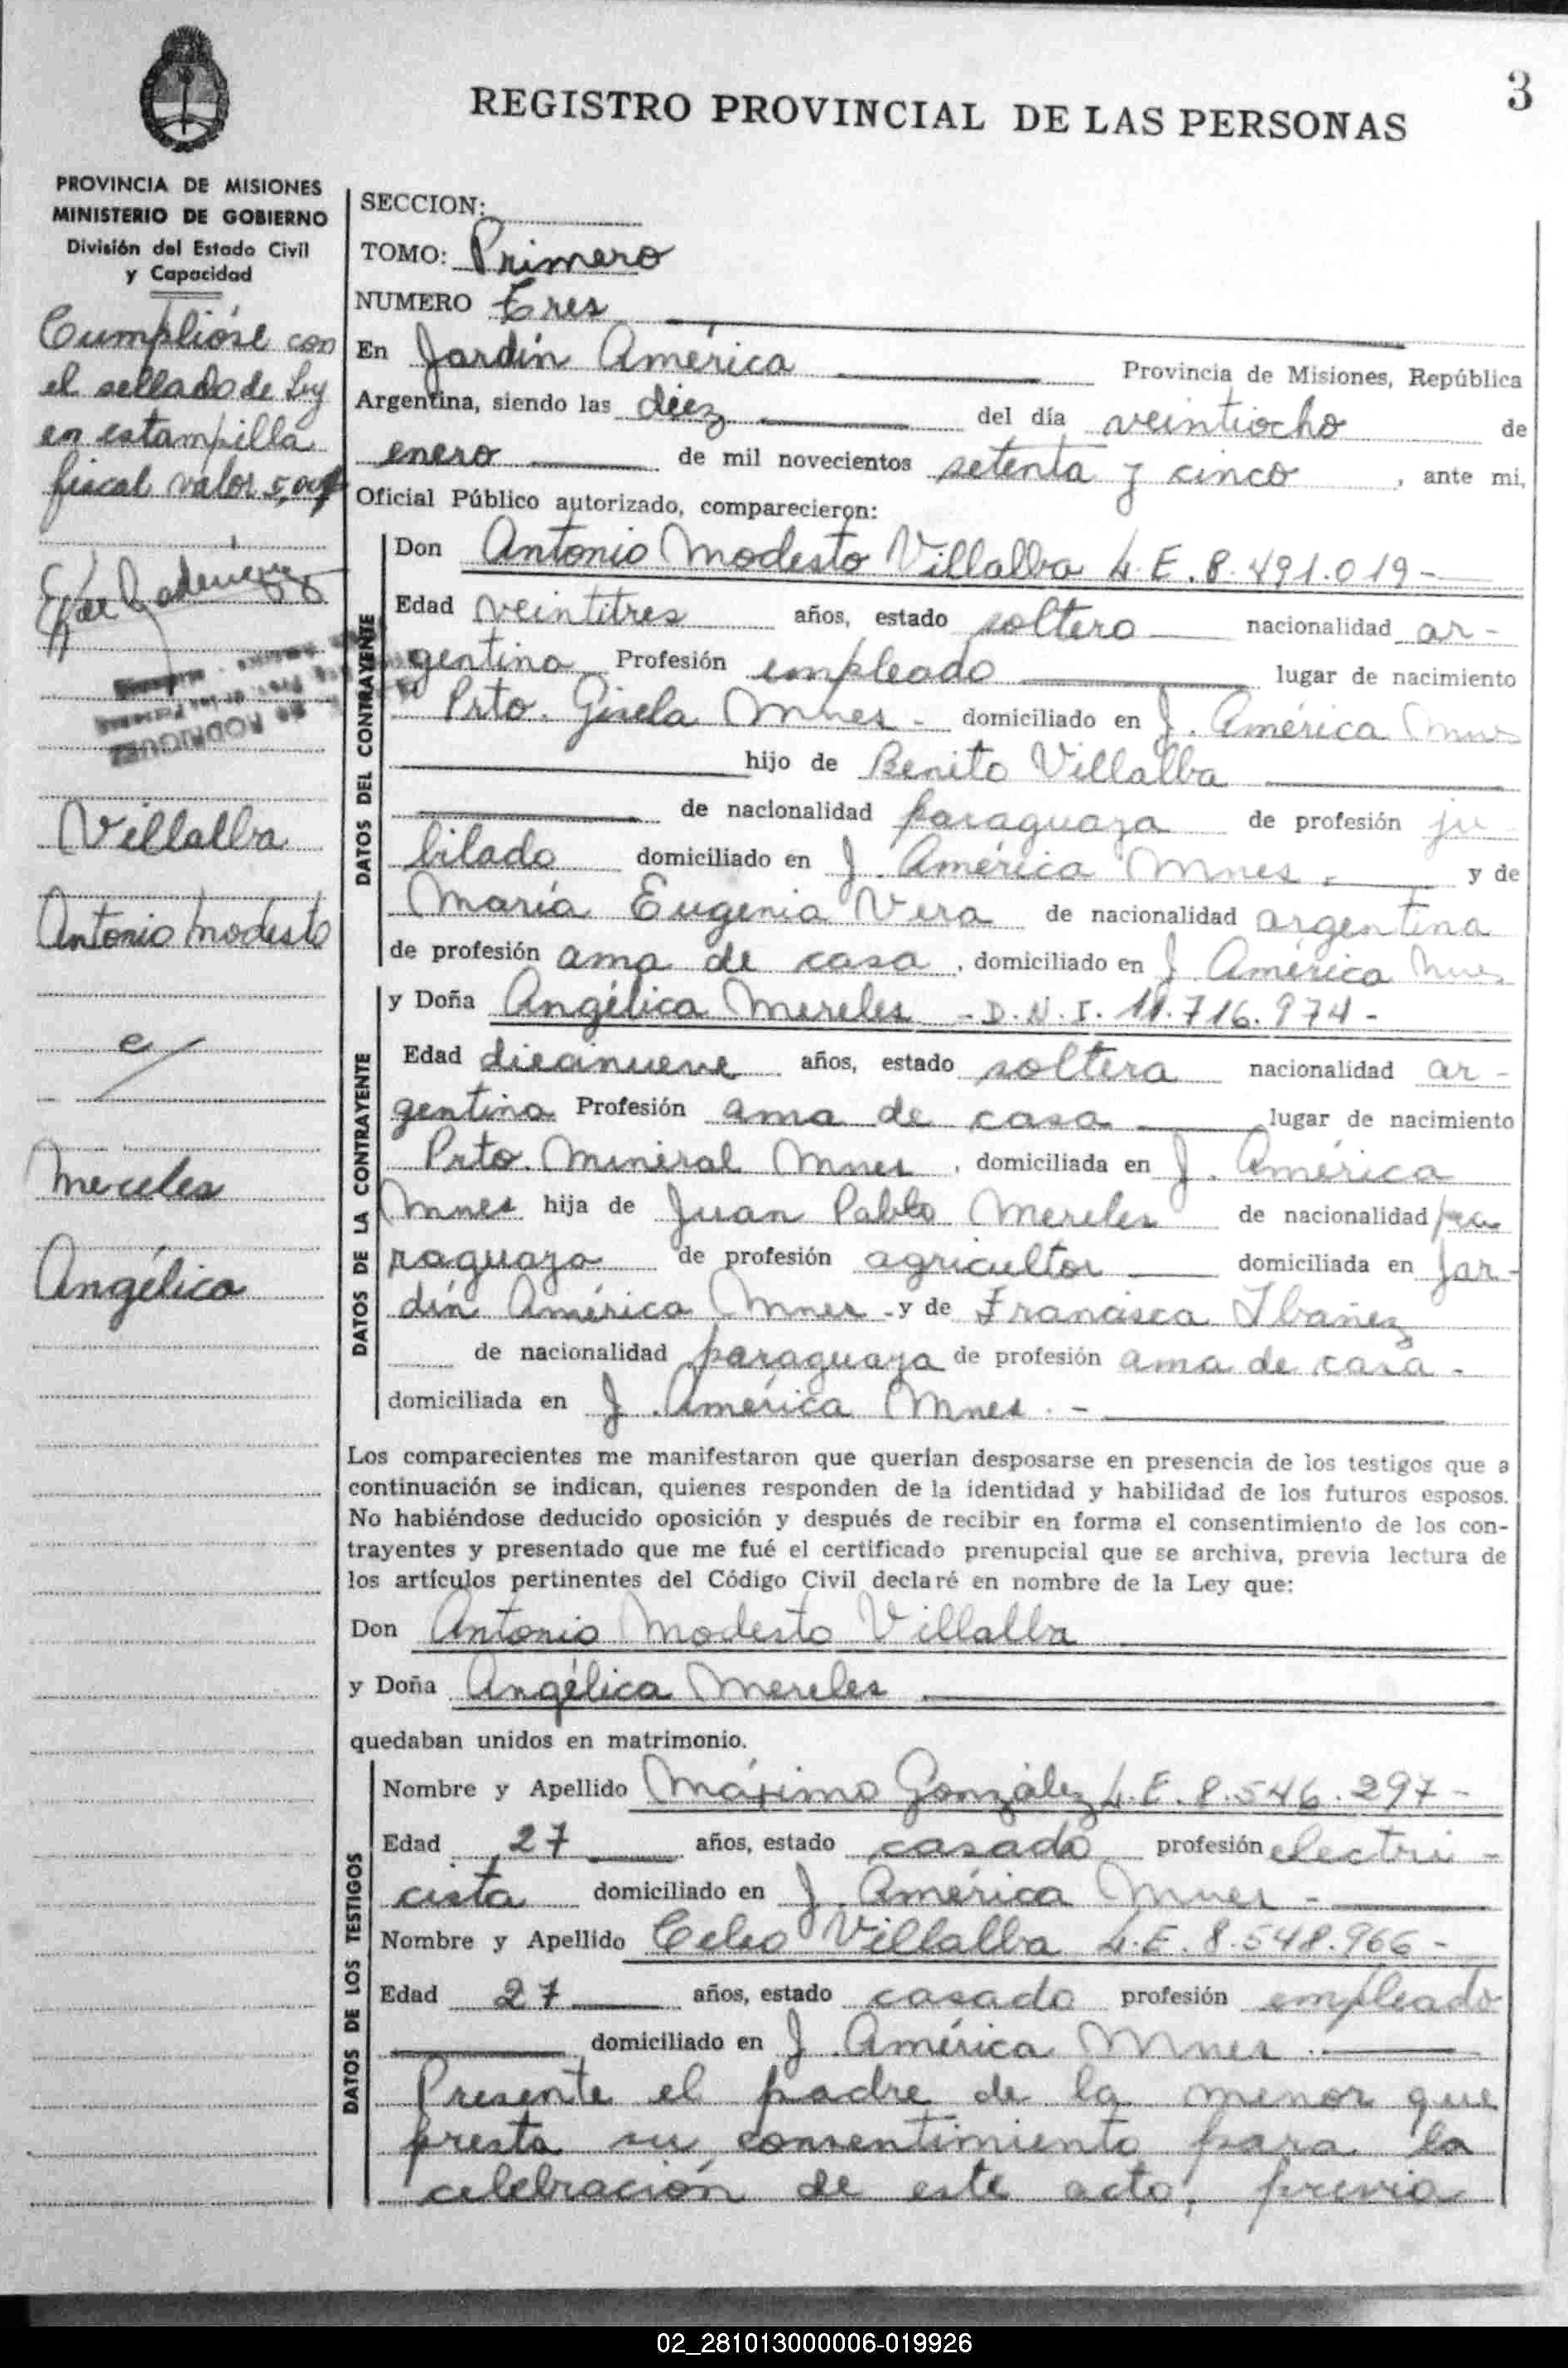 3
REGISTRO PROVINCIAL DE LAS PERSONAS
PROVINCIA DE MISIONES
MINISTERIO DE GOBIERNO
División del Estado Civil
y Capacidad
Cumplióse con
el sellado de Ley
en estampilla
fiscal valor 5,00
RODRIGUEZ
Villalba
Antonio Modesto
c/
Mereles
Angélica
SECCION:
TOMO: Primero
NUMERO Tres
En Jardín América Provincia de Misiones, República
Argentina, siendo las diez del día veintiocho de
enero de mil novecientos setenta y cinco, ante mi,
Oficial Público autorizado, comparecieron:
DATOS DEL CONTRAYENTE
Don Antonio Modesto Villalba L.E. 8.491.019-
Edad veintitres años, estado soltero nacionalidad ar-
gentina Profesión empleado lugar de nacimiento
Prto. Gisela Mnes - domiciliado en J. América Mnes
hijo de Benito Villalba
de nacionalidad paraguaya de profesión ju-
bilado domiciliado en J. América Mnes. y de
María Eugenia Vera de nacionalidad argentina
de profesión ama de casa, domiciliado en J América Mnes
DATOS DE LA CONTRAYENTE
y Doña Angélica Mereles - D.N.I. 11.716.974-
Edad diecinueve años, estado soltera nacionalidad ar-
gentina Profesión ama de casa lugar de nacimiento
Prto. Mineral Mnes, domiciliada en J. América
Mnes hija de Juan Pablo Mereles de nacionalidad pa
raguaya de profesión agricultor domiciliada en Jar-
dín América Mnes - y de Francisca Ibañez
de nacionalidad paraguaya de profesión ama de casa -
domiciliada en J. América Mnes. -
Los comparecientes me manifestaron que querían desposarse en presencia de los testigos que a
continuación se indican, quienes responden de la identidad y habilidad de los futuros esposos.
No habiéndose deducido oposición y después de recibir en forma el consentimiento de los con-
trayentes y presentado que me fué el certificado prenupcial que se archiva, previa lectura de
los artículos pertinentes del Código Civil declaré en nombre de la Ley que:
Don Antonio Modesto Villalba
y Doña Angélica Mereles
quedaban unidos en matrimonio.
DATOS DE LOS TESTIGOS
Nombre y Apellido Máximo González L.E. 8.546.297-
Edad 27 años, estado casado profesión electri-
cista domiciliado en J. América Mnes -
Nombre y Apellido Celso Villalba L.E. 8.548.966-
Edad 27 años, estado casado profesión empleado
domiciliado en J. América Mnes.
Presente el padre de la menor que
presta su consentimiento para la
celebración de este acto, previa
02_281013000006-019926